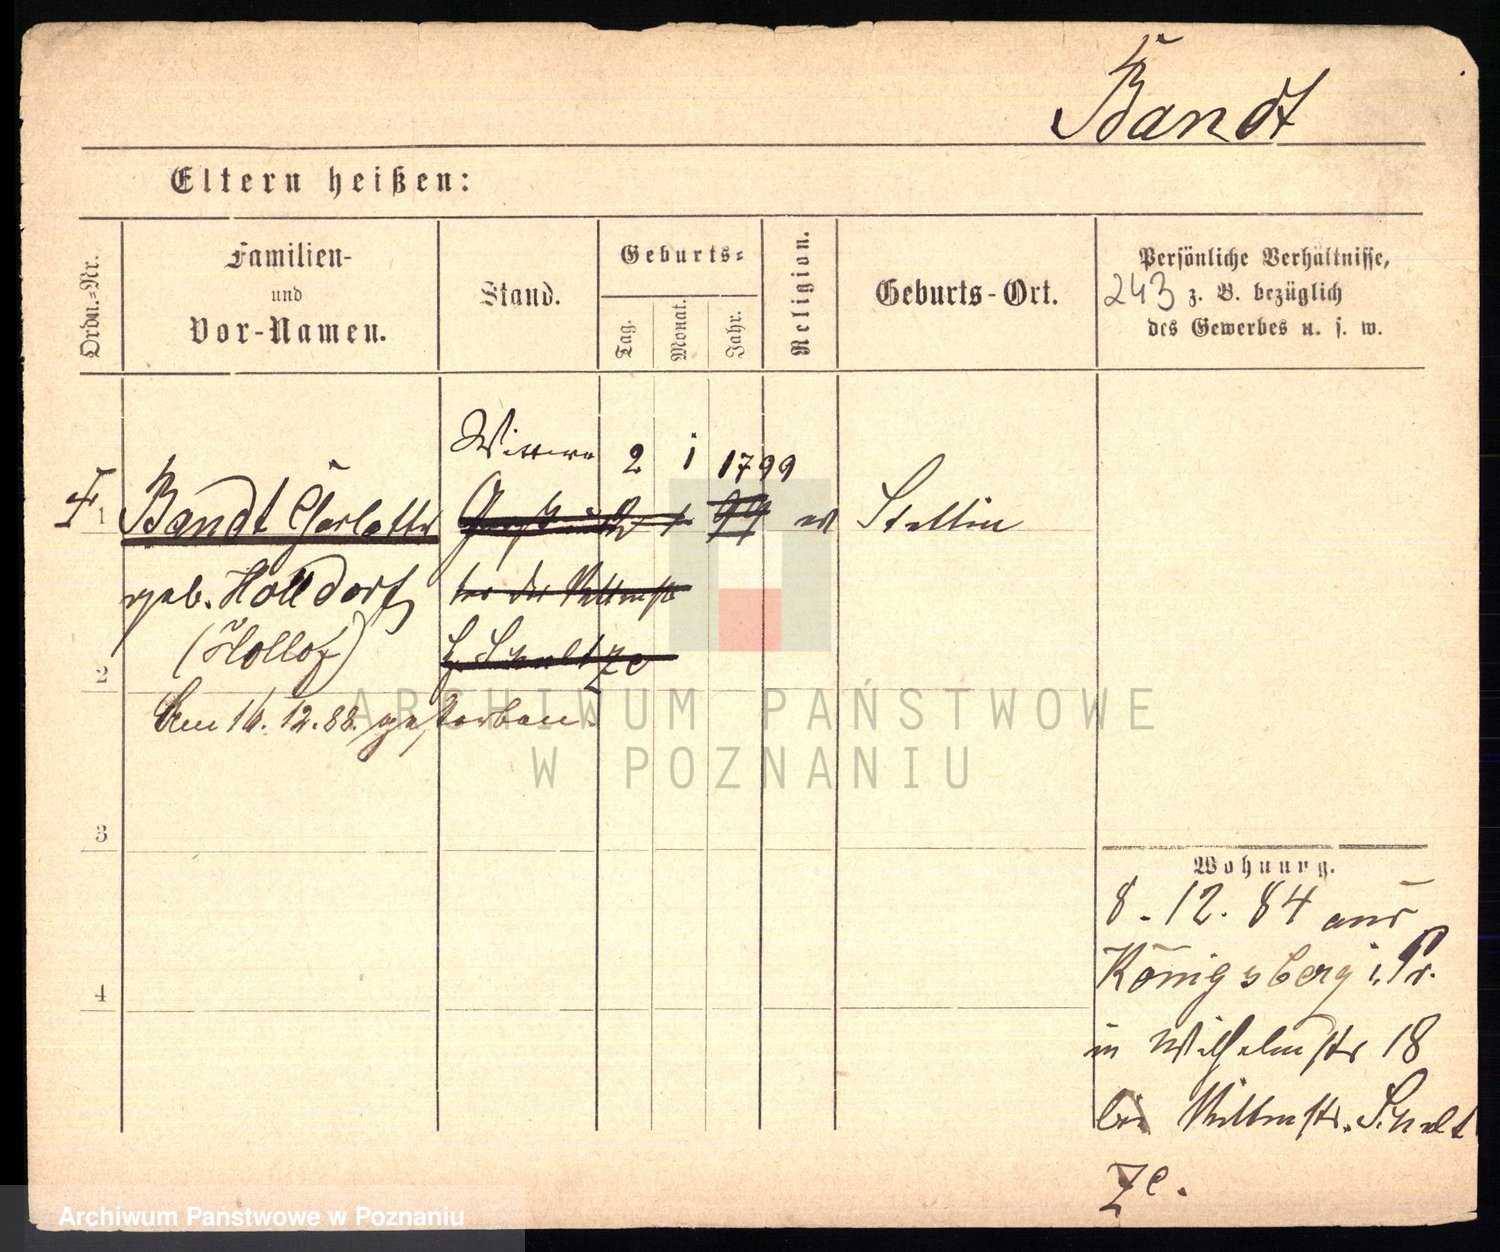 Bandt
Eltern heißen:
Ordn.-Nr.
Familien-
und
Vor-Namen.
Stand.
Geburts-
Tag.
Monat.
Jahr.
Religion.
Geburts-Ort.
Persönliche Verhältnisse,
243 z. B. bezüglich
des Gewerbes u. s. w.
Wittwe 2 1 1799
1 Bandt Charlotte 99 ev Stettin
geb. Holldorf
(Hollof)
2
Am 16. 12. 88. gestorben.
3
4
Wohnung.
8. 12. 84 aus
Königsberg i. Pr.
in Wilhelmstr 18
bei Schult
ze.
ARCHIWUM PAŃSTWOWE
W POZNANIU
Archiwum Państwowe w Poznaniu